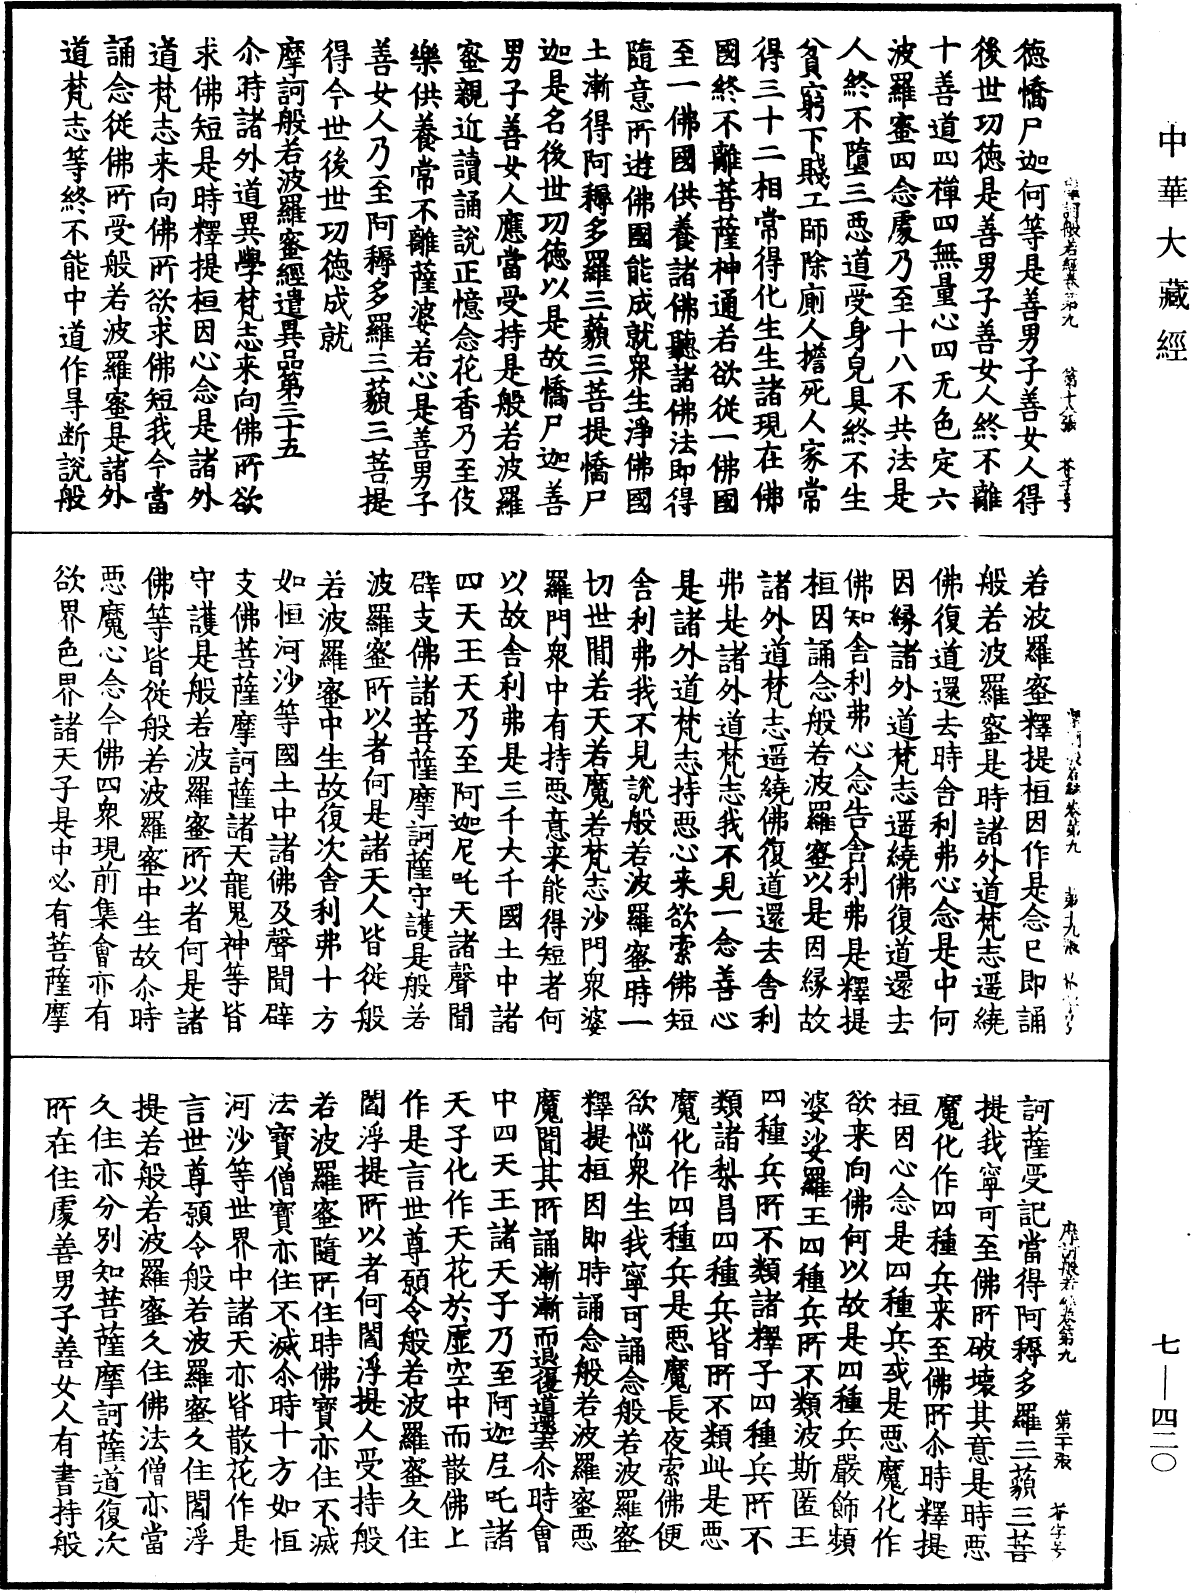 中華大藏經
德憍尸迦何等是善男子善女人得
後世功德是善男子善女人終不離
十善道四禪四無量心四无色定六
波羅蜜四念處乃至十八不共法是
人終不墮三惡道受身皃具終不生
貧窮下賤工師除廁人擔死人家常
得三十二相常得化生生諸現在佛
國終不離菩薩神通若欲從一佛國
至一佛國供養諸佛聽諸佛法即得
隨意所遊佛國能成就衆生淨佛國
土漸得阿耨多羅三藐三菩提憍尸
迦是名後世功德以是故憍尸迦善
男子善女人應當受持是般若波羅
蜜親近讀誦說正憶念花香乃至伎
樂供養常不離薩婆若心是善男子
善女人乃至阿耨多羅三藐三菩提
得今世後世功德成就
摩訶般若波羅蜜經遣異品第三十五
尒時諸外道異學梵志来向佛所欲
求佛短是時釋提桓因心念是諸外
道梵志来向佛所欲求佛短我今當
誦念從佛所受般若波羅蜜是諸外
道梵志等終不能中道作㝵断說般
若波羅蜜釋提桓因作是念已即誦
般若波羅蜜是時諸外道梵志遥繞
佛復道還去時舍利弗心念是中何
因緣諸外道梵志遥繞佛復道還去
佛知舍利弗心念告舍利弗是釋提
桓因誦念般若波羅蜜以是因緣故
諸外道梵志遥繞佛復道還去舍利
弗是諸外道梵志我不見一念善心
是諸外道梵志持惡心来欲索佛短
舍利弗我不見說般若波羅蜜時一
切世閒若天若魔若梵志沙門衆婆
羅門衆中有持惡意来能得短者何
以故舍利弗是三千大千國土中諸
四天王天乃至阿迦尼吒天諸聲聞
辟支佛諸菩薩摩訶薩守護是般若
波羅蜜所以者何是諸天人皆從般
若波羅蜜中生故復次舍利弗十方
如恒河沙等國土中諸佛及聲聞辟
支佛菩薩摩訶薩諸天龍鬼神等皆
守護是般若波羅蜜所以者何是諸
佛等皆從般若波羅蜜中生故尒時
惡魔心念今佛四衆現前集會亦有
欲界色界諸天子是中必有菩薩摩
訶薩受記當得阿耨多羅三藐三菩
提我寧可至佛所破壞其意是時惡
魔化作四種兵来至佛所尒時釋提
桓因心念是四種兵或是惡魔化作
欲来向佛何以故是四種兵嚴飾頻
婆娑羅王四種兵所不類波斯匿王
四種兵所不類諸釋子四種兵所不
類諸梨昌四種兵皆所不類此是惡
魔化作四種兵是惡魔長夜索佛便
欲惱衆生我寧可誦念般若波羅蜜
釋提桓因即時誦念般若波羅蜜惡
魔聞其所誦漸漸而退復道還去尒時會
中四天王諸天子乃至阿迦尼吒諸
天子化作天花於虛空中而散佛上
作是言世尊願令般若波羅蜜久住
閻浮提所以者何閻浮提人受持般
若波羅蜜隨所住時佛寶亦住不滅
法寶僧寶亦住不滅尒時十方如恒
河沙等世界中諸天亦皆散花作是
言世尊願令般若波羅蜜久住閻浮
提若般若波羅蜜久住佛法僧亦當
久住亦分別知菩薩摩訶薩道復次
所在住處善男子善女人有書持般
七—四二〇